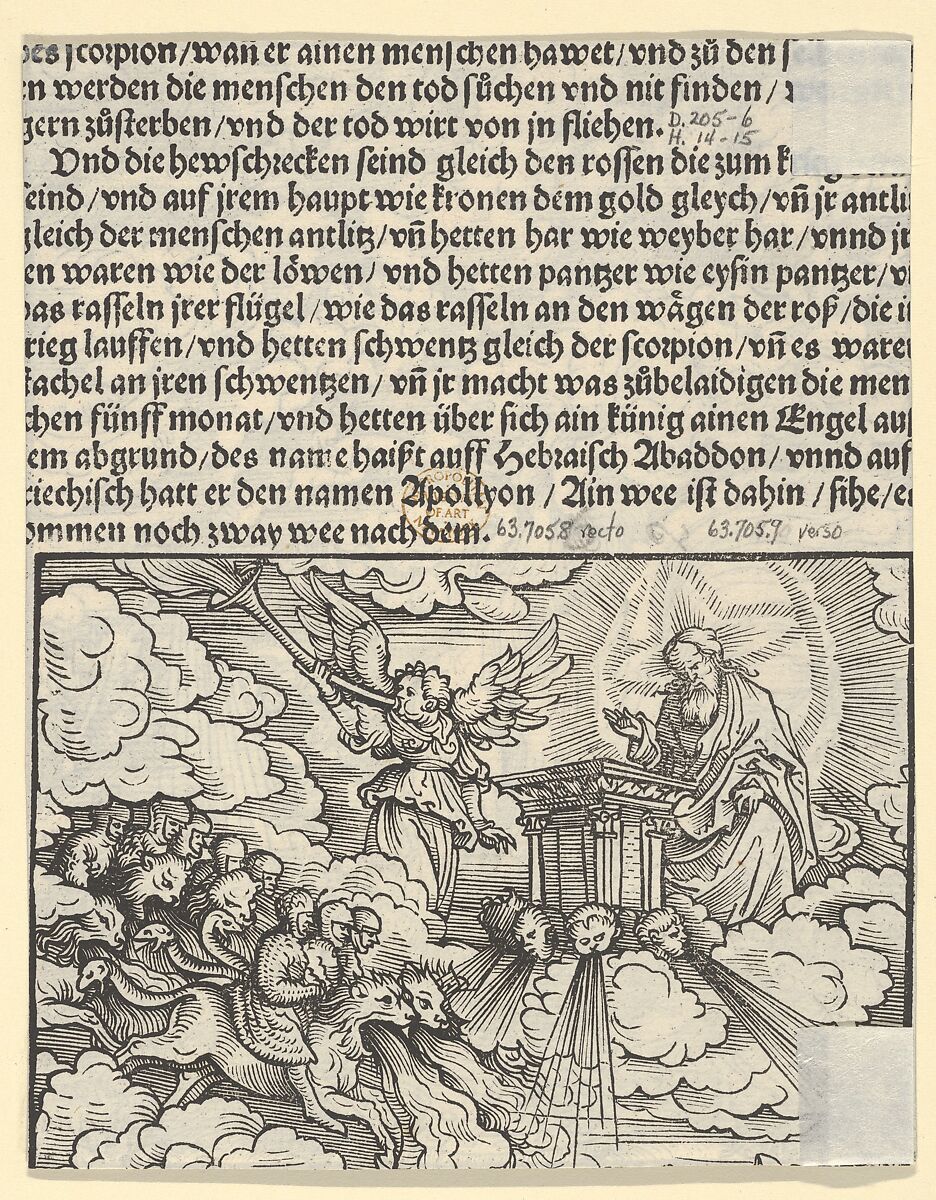 des scorpion/wañ er ainen menschen hawet/vnd zů den
n werden die menschen den tod sůchen vnd nit finden/
gern zůsterben/vnd der tod wirt von jn fliehen. D. 205-6
H. 14-15
Vnd die hewschrecken seind gleich den rossen die zum
seind/vnd auf jrem haupt wie kronen dem gold gleych/vñ jr antli
gleich der menschen antlitz/vñ hetten har wie weyber har/vnnd jr
en waren wie der löwen/vnd hetten pantzer wie eysin pantzer/v
das rasseln jrer flügel/wie das rasseln an den wägen der roß/die i
rieg lauffen/vnd hetten schwentz gleich der scorpion/vñ es ware
stachel an jren schwentzen/vñ jr macht was zůbelaidigen die men
chen fünff monat/vnd hetten über sich ain künig ainen Engel auß
em abgrund/des name haißt auff Hebraisch Abaddon/vnnd auf
riechisch hatt er den namen Apollyon/Ain wee ist dahin/sihe/e
ommen noch zway wee nach dem. 63.7058 recto 63.7059 verso
OF ART